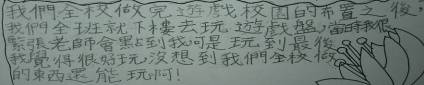 我們全校做完遊戲校園的布置之後，
我們全班就下樓去玩遊戲盤，當時我很
緊張老師會點到我可是玩到最後
我覺得很好玩沒想到我們全校做
的東西還能玩阿！